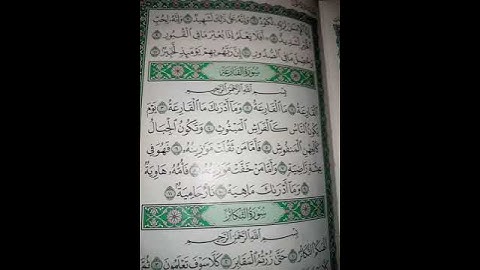 لِرَبِّهِۦ لَكَنُودٌ ۝ وَإِنَّهُۥ عَلَىٰ ذَٰلِكَ لَشَهِيدٌ ۝ وَإِنَّهُۥ لِحُبِّ
ٱلْخَيْرِ لَشَدِيدٌ ۝ أَفَلَا يَعْلَمُ إِذَا بُعْثِرَ مَا فِى ٱلْقُبُورِ ۝
وَحُصِّلَ مَا فِى ٱلصُّدُورِ ۝ إِنَّ رَبَّهُم بِهِمْ يَوْمَئِذٍ لَّخَبِيرٌۢ ۝
سُورَةُ القَارِعَةِ
بِسْمِ ٱللَّهِ ٱلرَّحْمَٰنِ ٱلرَّحِيمِ
ٱلْقَارِعَةُ ۝ مَا ٱلْقَارِعَةُ ۝ وَمَآ أَدْرَىٰكَ مَا ٱلْقَارِعَةُ ۝ يَوْمَ
يَكُونُ ٱلنَّاسُ كَٱلْفَرَاشِ ٱلْمَبْثُوثِ ۝ وَتَكُونُ ٱلْجِبَالُ
كَٱلْعِهْنِ ٱلْمَنفُوشِ ۝ فَأَمَّا مَن ثَقُلَتْ مَوَٰزِينُهُۥ ۝ فَهُوَ فِى
عِيشَةٍ رَّاضِيَةٍ ۝ وَأَمَّا مَنْ خَفَّتْ مَوَٰزِينُهُۥ ۝ فَأُمُّهُۥ هَاوِيَةٌ
۝ وَمَآ أَدْرَىٰكَ مَا هِيَهْ ۝ نَارٌ حَامِيَةٌۢ ۝
سُورَةُ التَّكَاثُرِ
بِسْمِ ٱللَّهِ ٱلرَّحْمَٰنِ ٱلرَّحِيمِ
أَلْهَىٰكُمُ ٱلتَّكَاثُرُ ۝ حَتَّىٰ زُرْتُمُ ٱلْمَقَابِرَ ۝ كَلَّا سَوْفَ تَعْلَمُونَ ۝ ثُمَّ